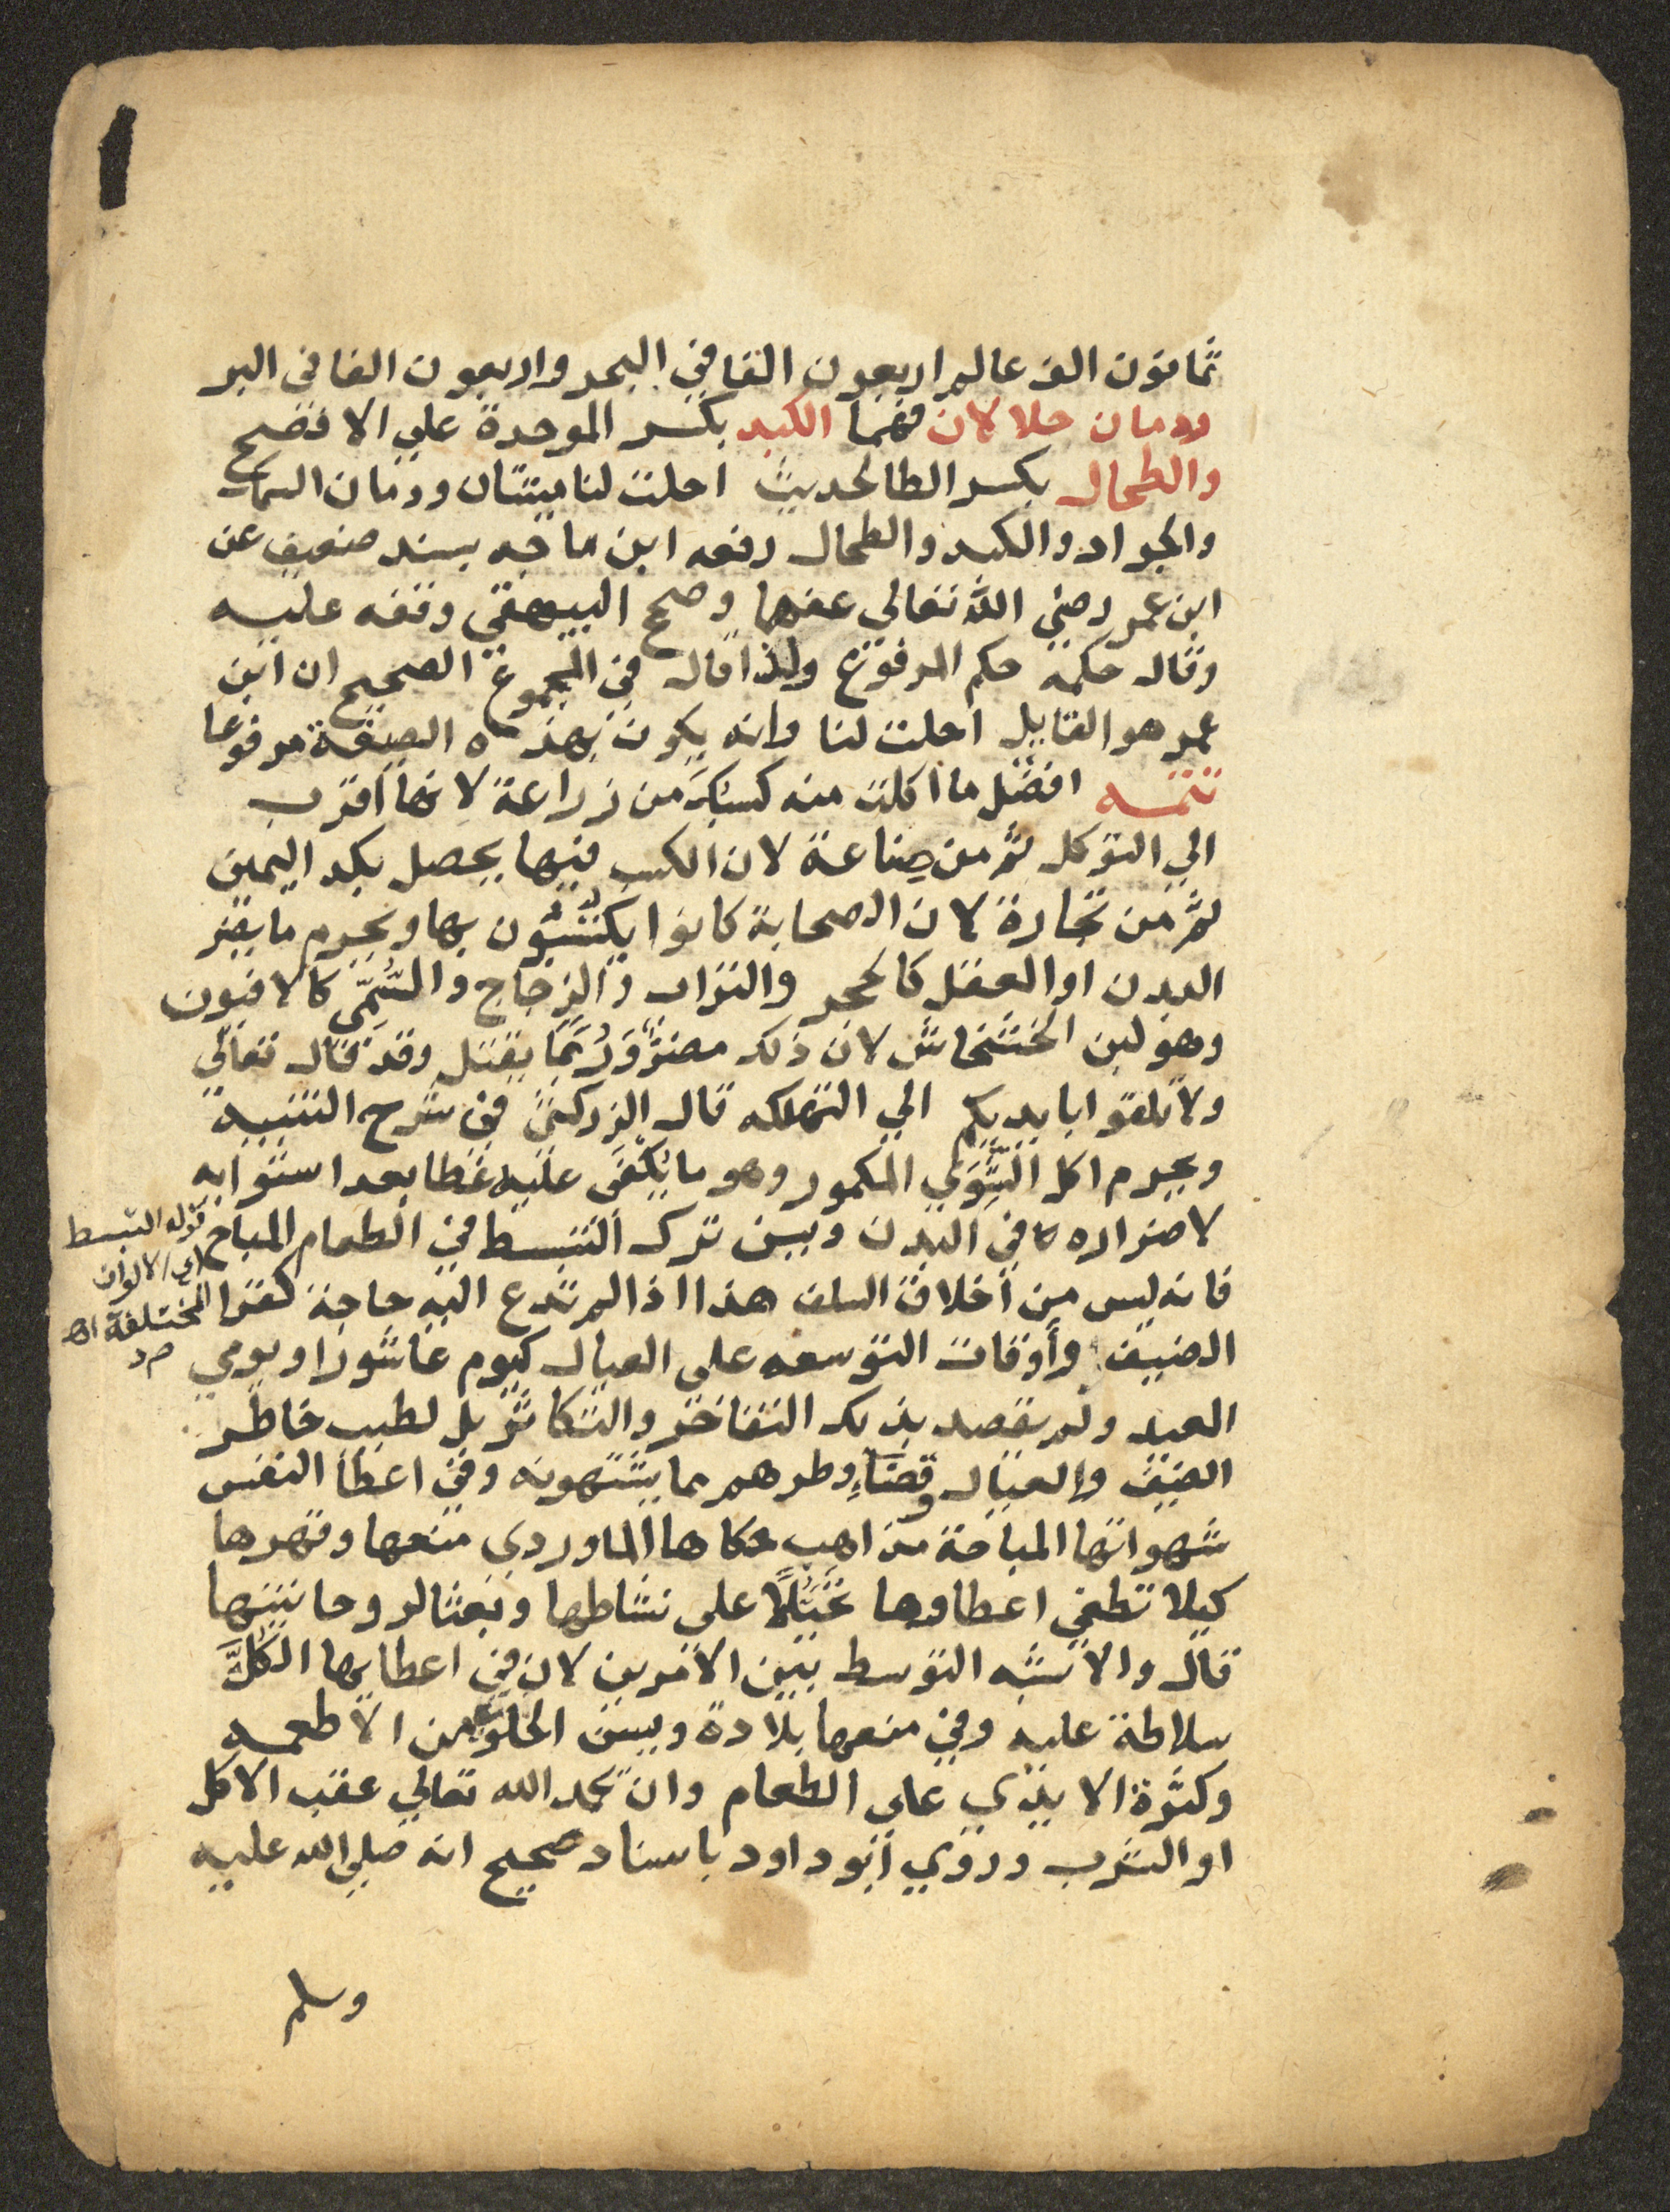 ثمانون الف عالم اربعون الفا في البحر واربعون الفا في البر
ودمان حلالان فهما الكبد بكسر الموحدة علي الافصح
والطحال بكسر الطا لحديث احلت لنا ميتتان ودمان السمك
والجراد والكبد والطحال رفعه ابن ماجه بسند ضعيف عن
ابن عمر رضي الله تعالي عنهما وصحح البيهقي وقفه عليه
وقال حكمه حكم المرفوع ولذا قال في المجموع الصحيح ان ابن
عمر هو القايل احلت لنا وانه يكون بهذه الصيغة مرفوعا
تتمه افضل ما اكلت منه كسبك من زراعة لانها اقرب
الي التوكل ثم من صناعة لان الكسب فيها يحصل بكد اليمين
ثم من تجارة لان الصحابة كانوا يكتسبون بها ويحرم ما يضر
البدن او العقل كالحجر والتراب والزجاج والسم كالافيون
وهو لبن الخشخاش لان ذلك مضر وربما يقتل وقد قال تعالي
ولا تلقوا بايديكم الي التهلكه قال الزركشي في شرح التنبيه
ويحرم اكل الشوي المكمور وهو ما يكفي عليه غطا بعد استوايه
لاضراره بالبدن ويسن ترك التبسط في الطعام المباح
فانه ليس من اخلاق السلف هذا اذا لم تدع اليه حاجة كقرا
الضيف وأوقات التوسعه على العيال كيوم عاشورا ويومي
العيد ولم يقصد بذلك التفاخر والتكاثر بل لطيب خاطر
الضيف والعيال وقضاء وطرهم مما يشتهونه وفي اعطا النفس
شهواتها المباحة مذاهب حكاها الماوردي منعها وقهرها
كيلا تطغي اعطاوها تحيلا على نشاطها وبعثا لروحانيتها
قال والاشبه التوسط بين الامرين لان في اعطايها الكل
سلاطة عليه وفي منعها بلادة ويسن الحلو من الاطعمه
وكثرة الايدي علي الطعام وان يحمد الله تعالي عقب الاكل
او الشرب وروي ابو داود باسناد صحيح انه صلي الله عليه
وسلم
قوله التبسط
اي الالوان
المختلفة اه